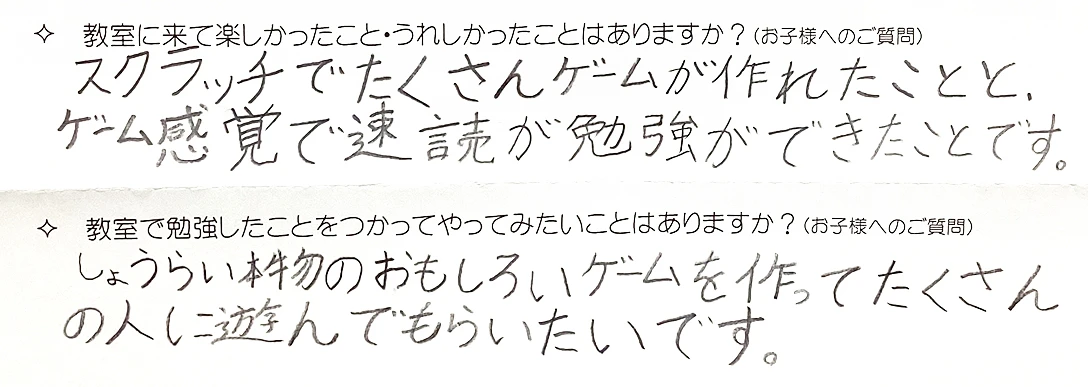 ✧ 教室に来て楽しかったこと・うれしかったことはありますか？(お子様へのご質問)
スクラッチでたくさんゲームが作れたことと、
ゲーム感覚で速読が勉強ができたことです。
✧ 教室で勉強したことをつかってやってみたいことはありますか？(お子様へのご質問)
しょうらい本物のおもしろいゲームを作ってたくさん
の人に遊んでもらいたいです。